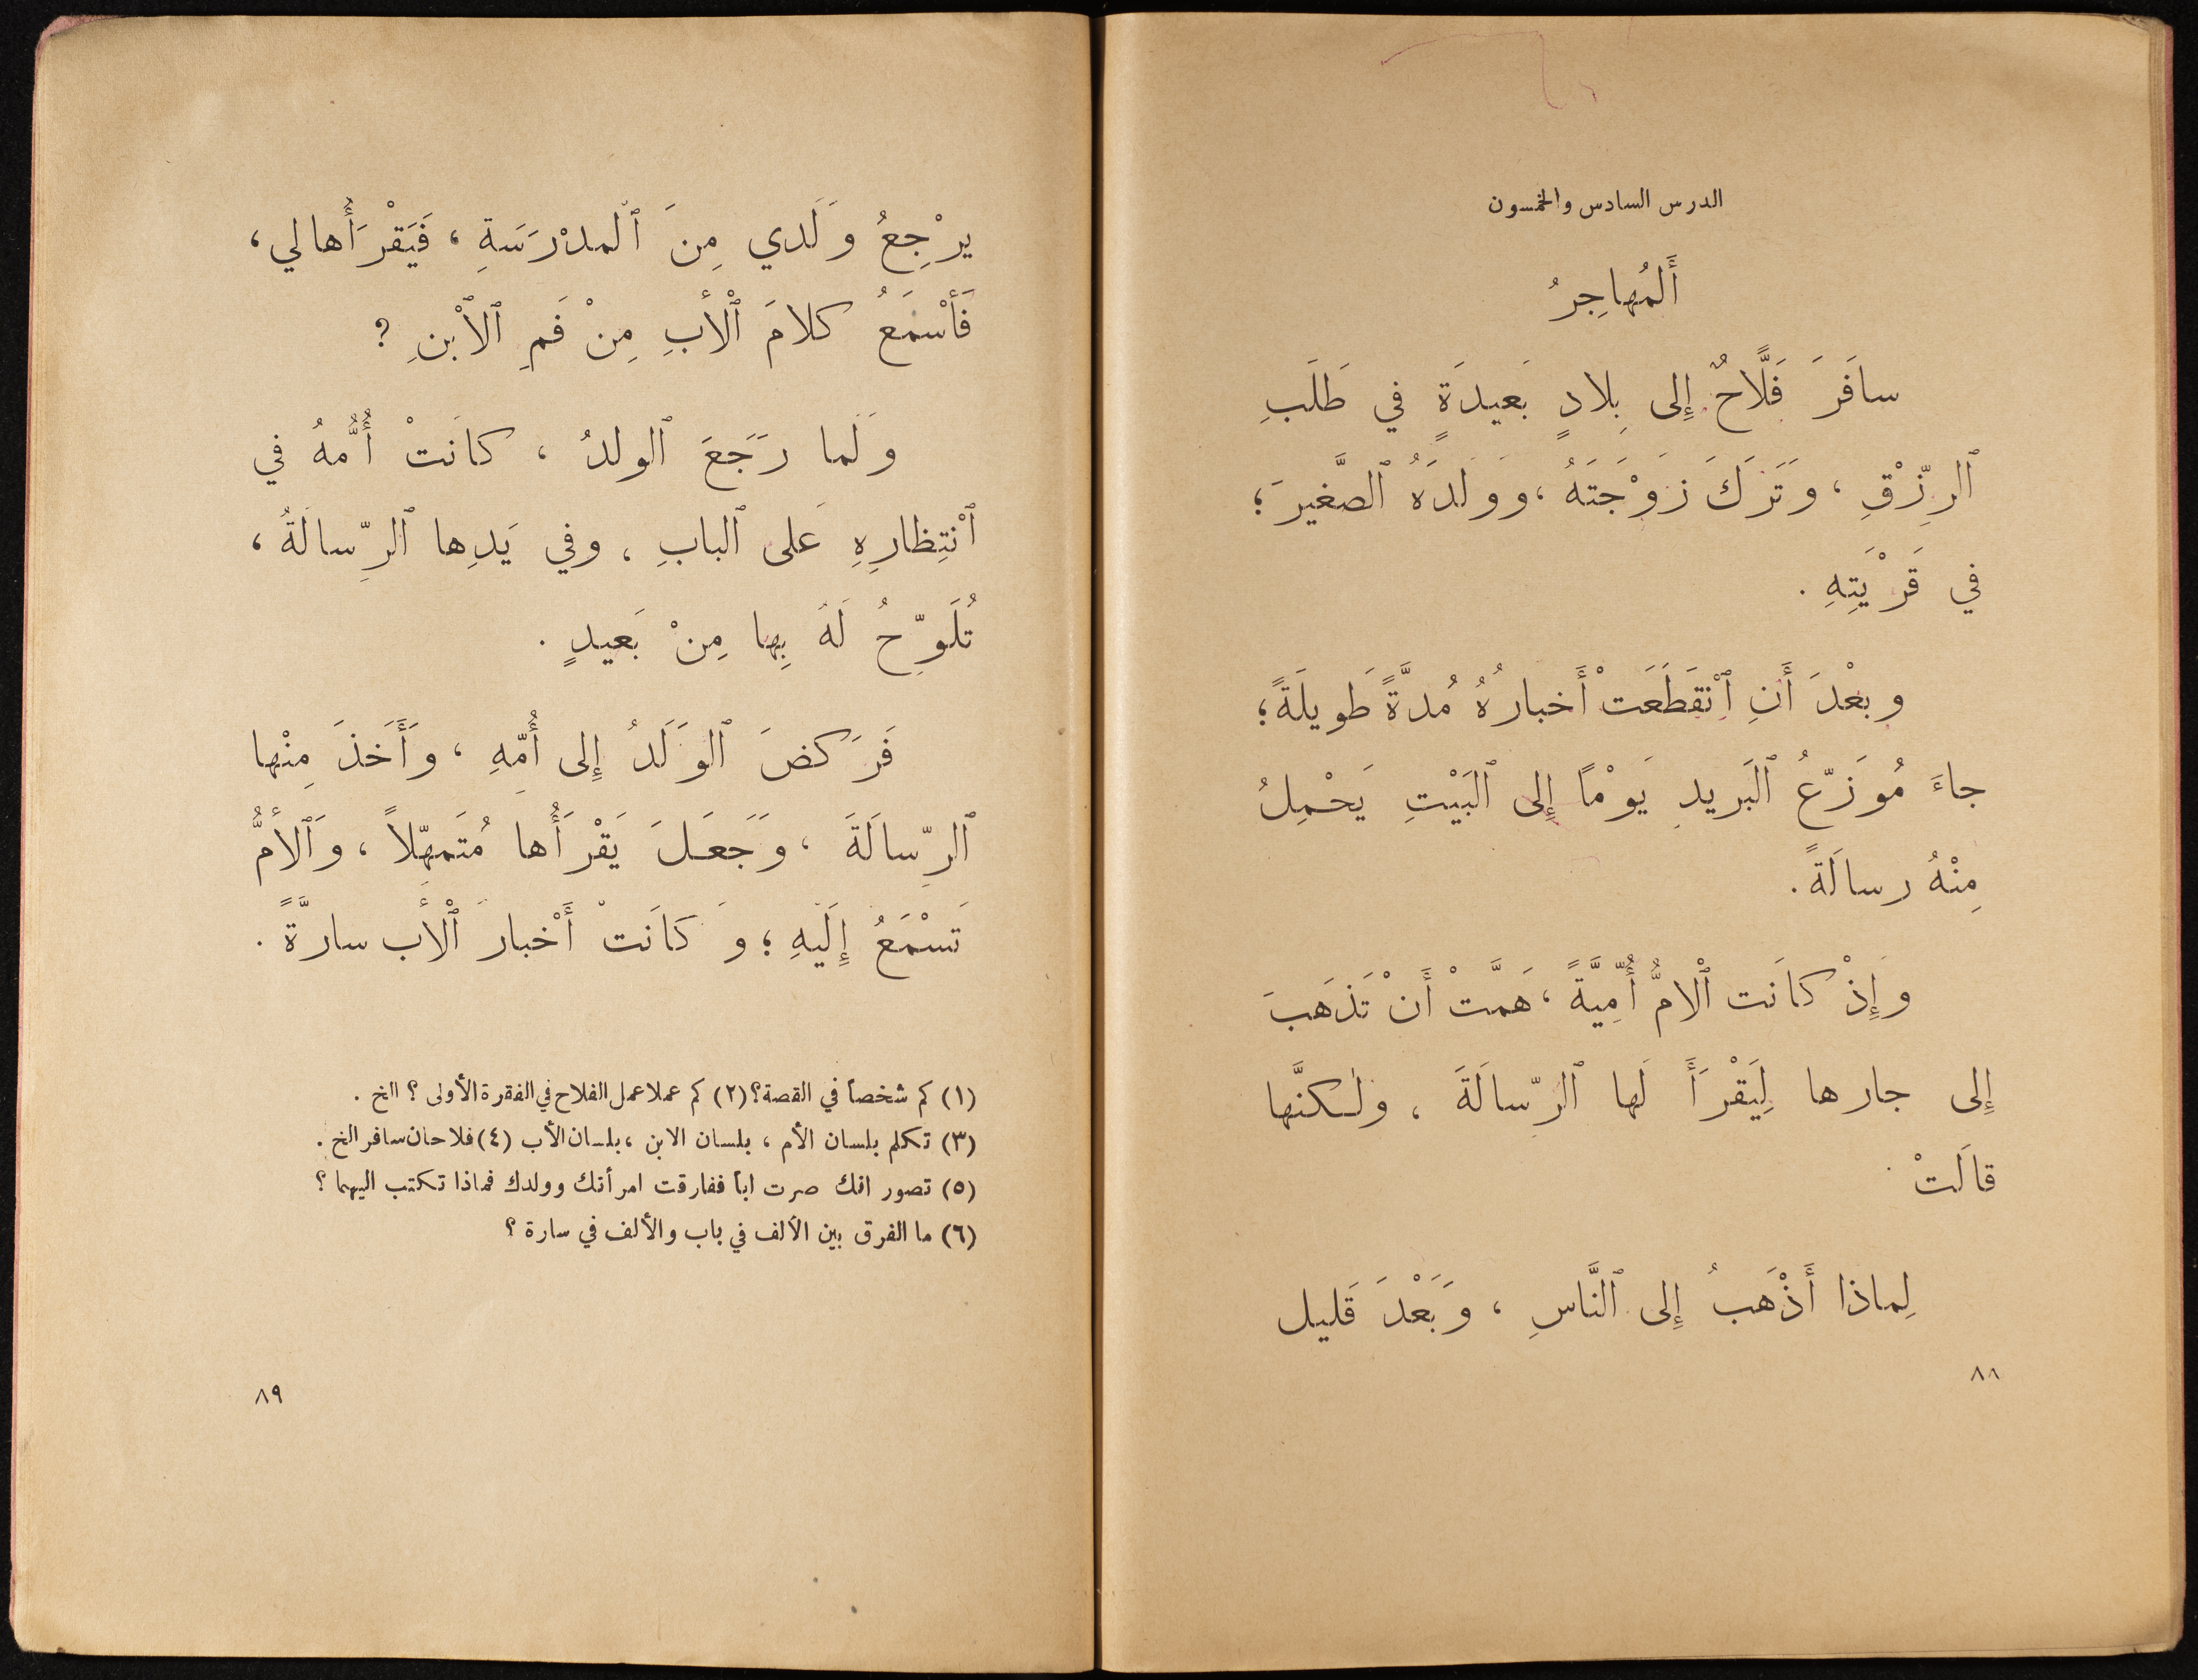 الدرس السادس والخمسون
أَلمُهاجِرُ
سافَرَ فَلَّاحٌ إِلى بِلادٍ بَعيدَةٍ في طَلَبِ
ٱلرِّزْقِ ، وَتَرَكَ زَوْجَتَهُ ، وَوَلَدَهُ ٱلصَّغيرَ ؛
في قَرْيَتِهِ .
وبعْدَ أَنِ ٱنْقَطَعَتْ أَخبارُهُ مُدَّةً طَويلَةً ؛
جاءَ مُوَزّعُ ٱلبَريدِ يَوْمًا إِلى ٱلبَيْتِ يَحْمِلُ
مِنْهُ رسالَةً .
وَإِذْ كانَت ٱلْامُّ أُمِّيَّةً ، هَمَّتْ أَنْ تَذهَبَ
إِلى جارها لِيَقْرَأَ لَها ٱلرّسالَةَ ، ولٰكنَّها
قالَتْ
لِماذا أَذْهَبُ إِلى ٱلنَّاسِ ، وَبَعْدَ قَليل
٨٨
يرْجِعُ وَلَدي مِنَ ٱلمدْرَسَةِ ، فَيَقْرَأُها لي ،
فَأَسْمَعُ كلامَ ٱلْأَبِ مِنْ فَمِ ٱلاْبْنِ ؟
وَلَما رَجَعَ ٱلولدُ ، كانَتْ أُمُّهُ في
ٱنْتِظارِهِ عَلى ٱلبابِ ، وفي يَدِها ٱلرِّسالَةُ ،
تُلَوِّحُ لَهُ بِها مِنْ بَعيدٍ .
فَرَكضَ ٱلوَلَدُ إِلى أُمِّهِ ، وَأَخَذَ مِنْها
ٱلرِّسالَةَ ، وَجَعَلَ يَقْرَأُها مُتَمهِّلاً ، وَٱلأُمُّ
تَسْمَعُ إِلَيهِ ؛ وَ كانَتْ أَخْبارَ ٱلْأَب سارَّةً .
(١) كم شخصاً في القصة ؟ (٢) كم عملا عمل الفلاح في الفقرة الأولى ؟ الخ .
(٣) تكلم بلسان الأم ، بلسان الابن ، بلسان الأب (٤) فلاحان سافر الخ .
(٥) تصور انك صرت اباً ففارقت امرأتك وولدك فماذا تكتب اليهما ؟
(٦) ما الفرق بين الألف في باب والألف في سارة ؟
٨٩